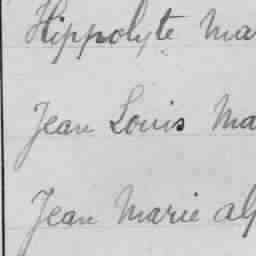 Hippolyte Ma
Jean Louis Ma
Jean Marie alp